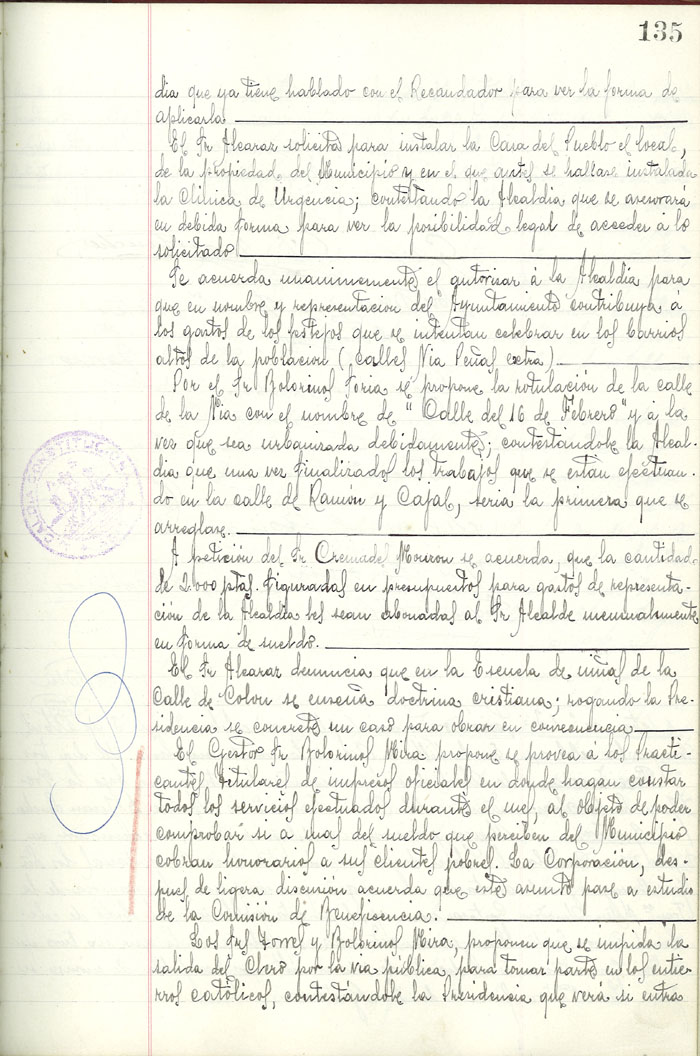 135
dia que ya tiene hablado con el Recaudador para ver la forma de
aplicarla
El Sr Alcaraz solicita para instalar la Casa del Pueblo el local,
de la propiedad del Municipio y en el que antes se hallase instalada
la Clinica de Urgencia; contestando la Alcaldia que se asesorará
en debida forma para ver la posibilidad legal de acceder á lo
solicitado
Se acuerda unanimemente el autorizar á la Alcaldia para
que en nombre y representacion del Ayuntamiento contribuya á
los gastos de los festejos que se intentan celebrar en los barrios
altos de la poblacion (calles Nia Peñas extra)
Por el Sr Bolorinos Soria se propone la rotulación de la calle
de la Nia con el nombre de "Calle del 16 de Febrero" y á la
vez que sea urbanizada debidamente; contestandole la Alcal-
dia que una vez finalizados los trabajos que se están ejecutan-
do en la calle de Ramón y Cajal, seria la primera que se
arreglase.
A petición del Sr Cremades Monzon se acuerda, que la cantidad
de 2.000 ptas. figuradas en presupuestos para gastos de representa-
ción de la Alcaldia les sean abonadas al Sr Alcalde mensualmente
en forma de sueldo.
El Sr Alcaraz denuncia que en la Escuela de niñas de la
Calle de Colon se enseña doctrina cristiana; rogando la Pre-
sidencia se concrete un caso para obrar en consecuencia
El Gestor Sr Bolorinos Mira propone se provea á los Practi-
cantes titulares de impresos oficiales en donde hagan constar
todos los servicios efectuados durante el mes, al objeto de poder
comprobar si a mas del sueldo que perciben del Municipio
cobran honorarios a sus clientes pobres. La Corporación, des-
pues de ligera discusión acuerda que este asunto pase a estudio
de la Comisión de Beneficencia.
Los Srs Torres y Bolorinos Mira, proponen que se impida la
salida del Clero por la via publica, para tomar parte en los entie-
rros católicos, contestándole la Presidencia que verá si entra
CONSTITUCION